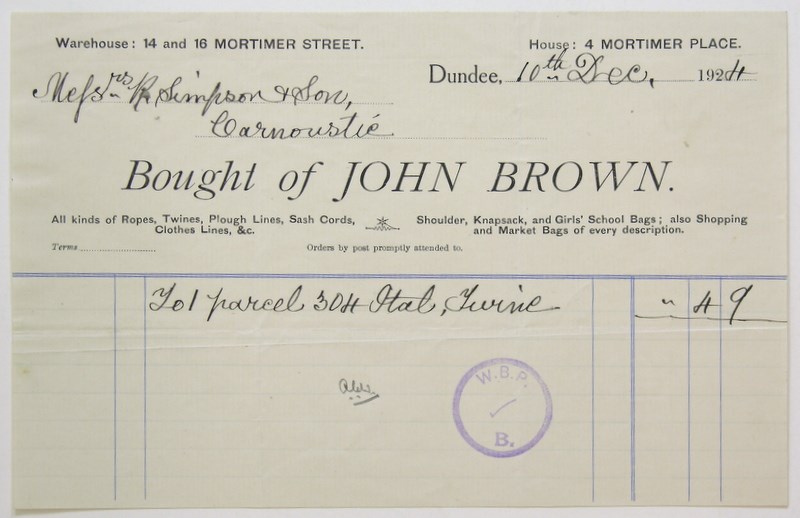 Warehouse: 14 and 16 MORTIMER STREET.
House: 4 MORTIMER PLACE.
Dundee, 10th Dec. 1924
Messrs R Simpson & Son,
Carnoustie
Bought of JOHN BROWN.
All kinds of Ropes, Twines, Plough Lines, Sash Cords,
Clothes Lines, &c.
Shoulder, Knapsack, and Girls' School Bags; also Shopping
and Market Bags of every description.
Terms
Orders by post promptly attended to.
To 1 parcel 304 Ital, Twine " 4 9
W.B.P.
B.